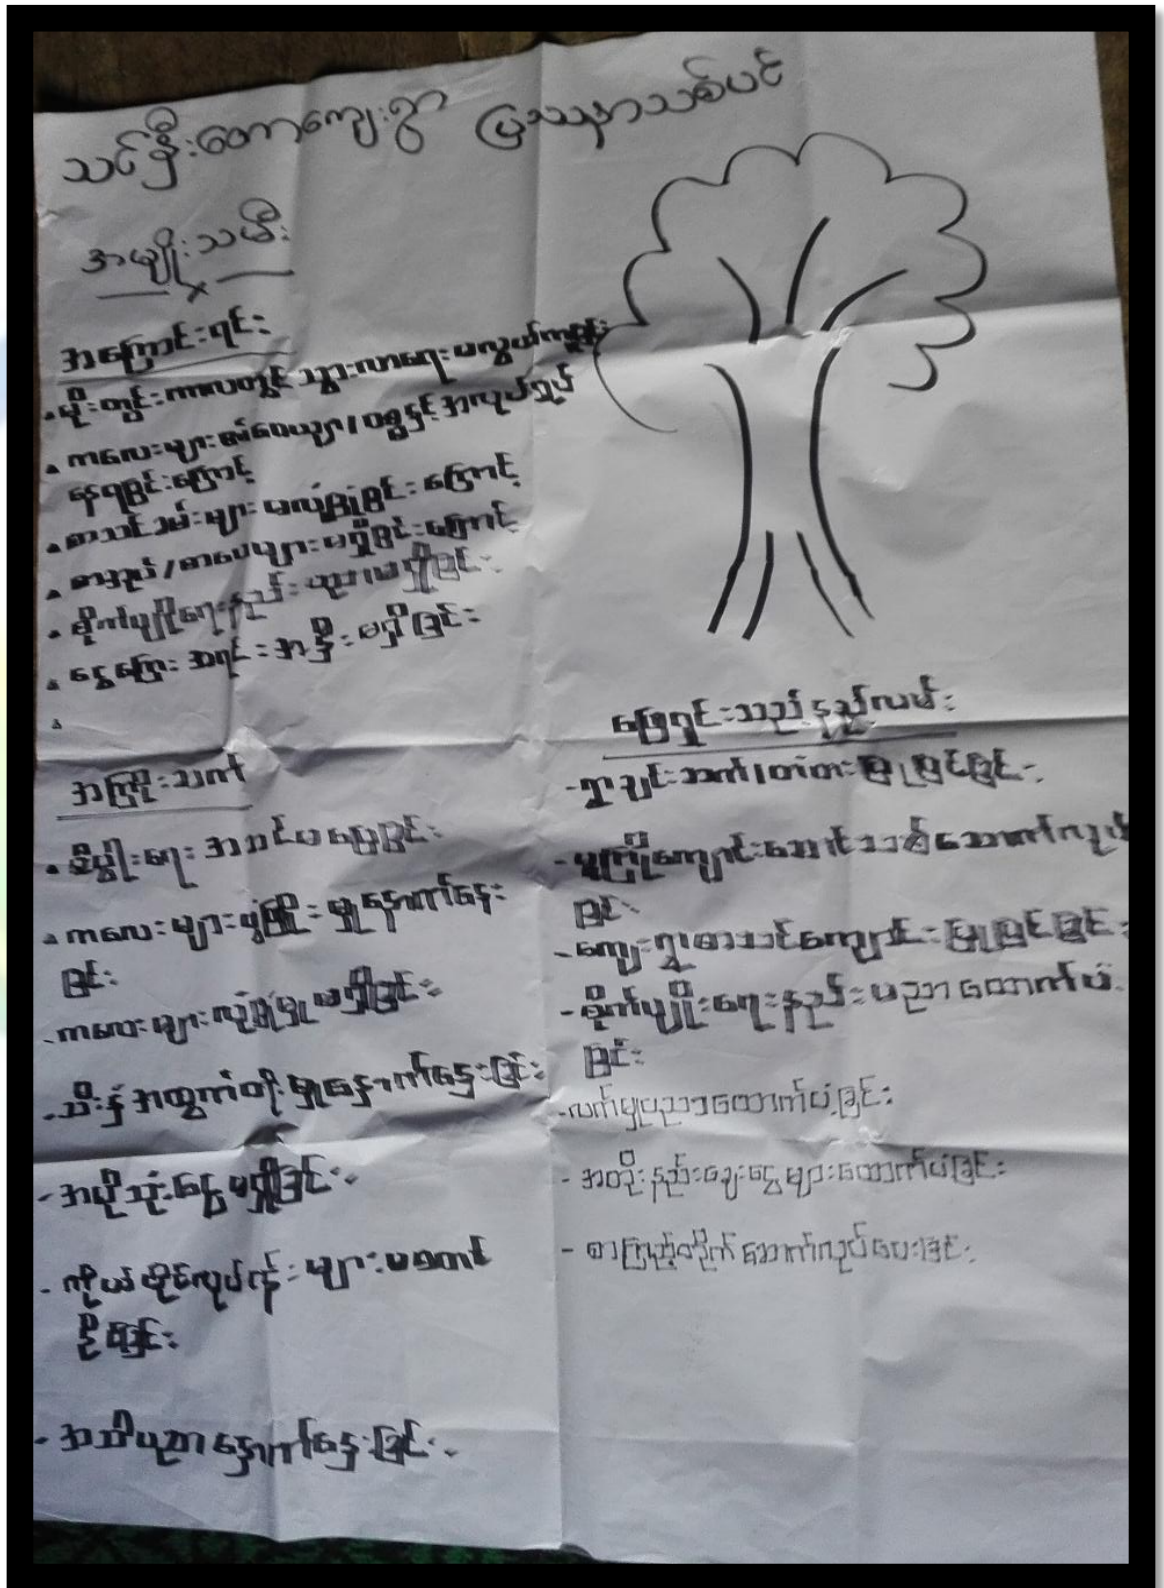 သင်္ဘောတောကျေးရွာ ပြဿနာသစ်ပင်
အမျိုးသမီး
အကြောင်းရင်း
မိုးတွင်းကာလတွင် သွားလာရေးမလွယ်ကူခြင်း
ကလေးများ
နေရခြင်းကြောင့်
စာသင်ခန်းများ မလုံခြုံခြင်းကြောင့်
စာအုပ်/စာပေများမရှိခြင်းကြောင့်
စိုက်ပျိုးရေးနည်းပညာမရှိခြင်း
ငွေကြေးအရင်းအနှီးမရှိခြင်း
အကျိုးသက်
စီးပွါးရေး အဆင်မပြေခြင်း
ကလေးများဖွံ့ဖြိုးမှုနှောက်နှေး
ခြင်း
- ကလေးများလုံခြုံမှုမရှိခြင်း
- သီးနှံအထွက်တိုးမှုနှောက်နှေးခြင်း
- အပိုသုံးငွေမရှိခြင်း
- ကိုယ်ပိုင်လုပ်ငန်းများမစတင်
နိုင်ခြင်း
- အသိပညာနှောက်နှေးခြင်း
ဖြေရှင်းသည့်နည်လမ်း
- ရွာချင်းဆက်တံတားပြုပြင်ခြင်း
- မူကြိုကျောင်းဆောင်သစ်ဆောက်လုပ်
ခြင်း
- ကျေးရွာစာသင်ကျောင်းပြုပြင်ခြင်း
- စိုက်ပျိုးရေးနည်းပညာထောက်ပံ့
ခြင်း
- လက်မှုပညာထောက်ပံ့ခြင်း
- အတိုးနည်းချေးငွေများထောက်ပံ့ခြင်း
- စာကြည့်တိုက်ဆောက်လုပ်ပေးခြင်း